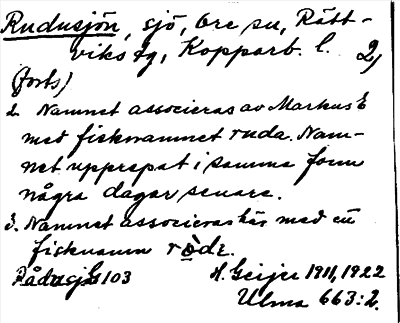 Rudusjön, sjö, Ore sn, Rätt-
viks tg, Kopparb. l. 2)
(forts)
2. Namnet associeras av Markus E
med fisknamnet ruda. Nam-
net upprepat i samma form
några dagar senare.
3. Namnet associeras här med en
fisknamn
103 H. Geijer 1911, 1922
Ulma 663:2.